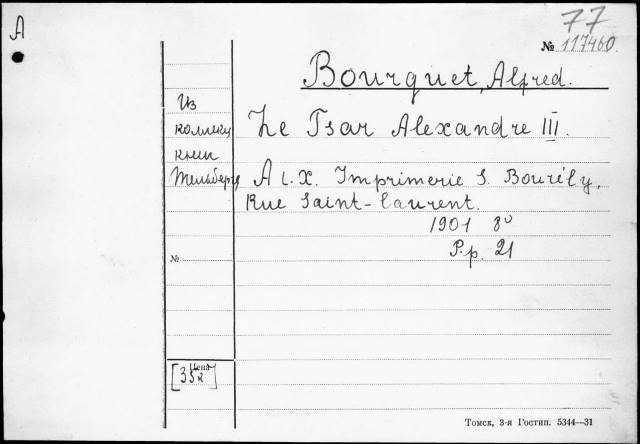 A
77
№ 117460.
Bourquet, Alfred.
Из
коллекц
книг
Тельберг
Le Tsar Alexandre III.
A i. X. Imprimerie S. Bourély,
Rue Saint-Laurent.
1901 8º
P.p. 21
№
Цена
[35к]
Томск, 3-я Гостип. 5344—31